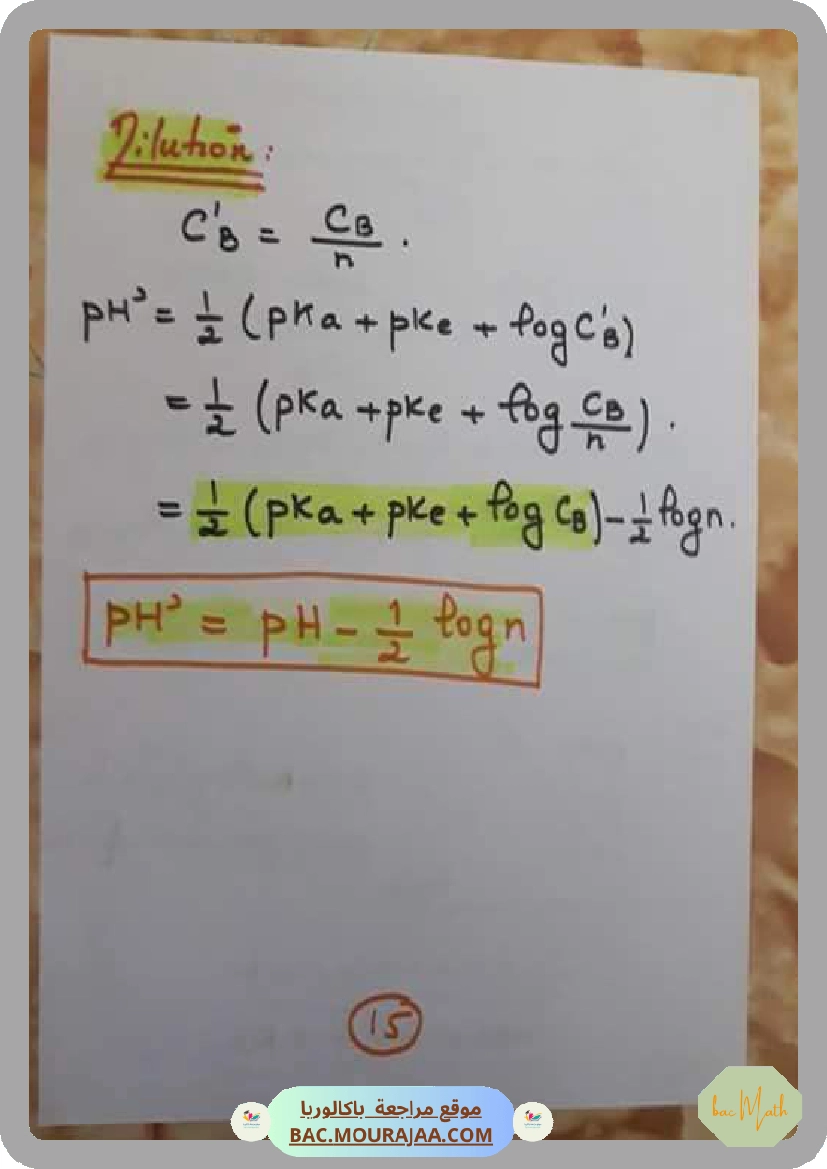 Dilution:
C'B = CB/n .
pH' = 1/2 (pKa + pKe + log C'B)
= 1/2 (pKa + pKe + log CB/n) .
= 1/2 (pKa + pKe + log CB) - 1/2 log n .
pH' = pH - 1/2 log n
15
موقع مراجعة باكالوريا
BAC.MOURAJAA.COM
bac Math